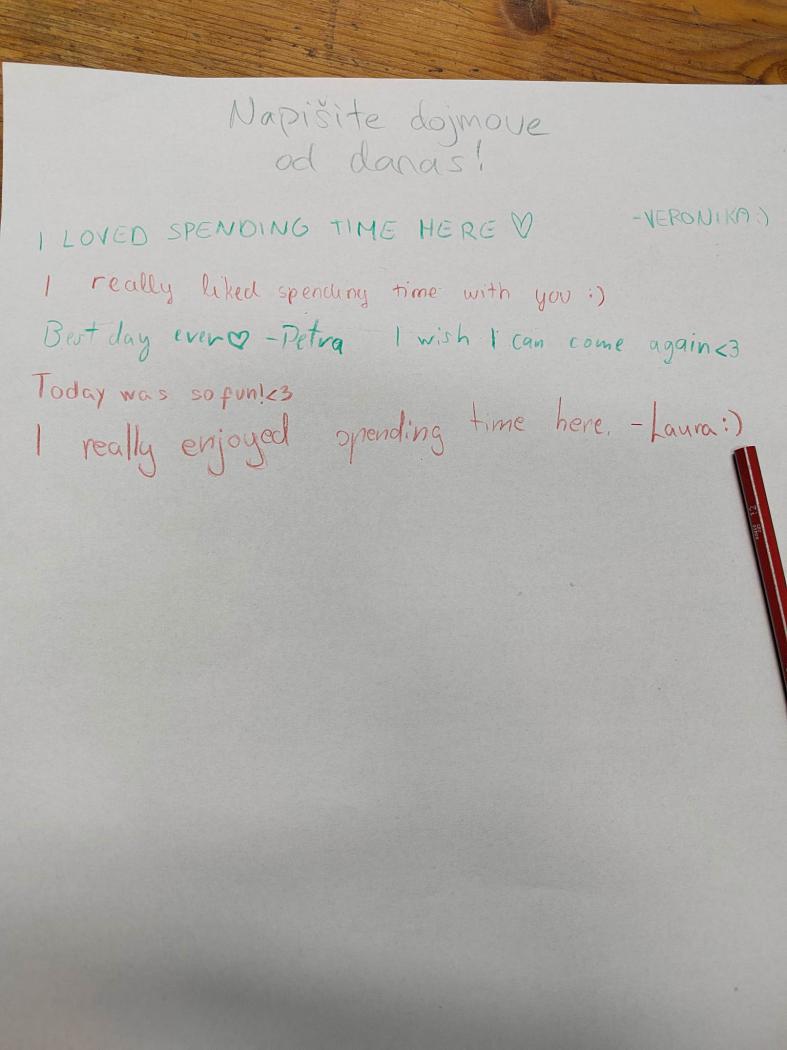 Napišite dojmove
od danas!
I LOVED SPENDING TIME HERE ♡ -VERONIKA:)
I really liked spending time with you :)
Best day ever♡ -Petra I wish I can come again<3
Today was so fun!<3
I really enjoyed spending time here. -Laura:)